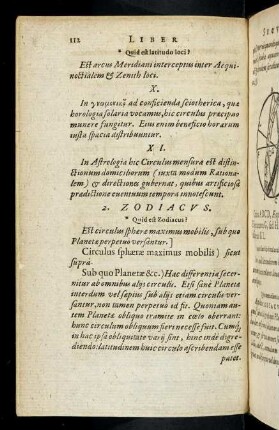 112 LIBER
* Quid est latitudo loci?
Est arcus Meridiani interceptus inter Aequi-
noctialem & Zenith loci.
X.
In γνωμονικῇ ad conficienda sciotherica, quæ
horologia solaria vocamus, hic circulus præcipuo
munere fungitur. Eius enim beneficio horarum
iusta spacia distribuuntur.
XI.
In Astrologia hic Circulus mensura est distin-
ctionum domiciliorum (iuxta modum Rationa-
lem) & directiones gubernat, quibus artificiosa
prædictione euentuum tempora innotescunt.
2. ZODIACVS.
* Quid est Zodiacus?
Est circulus sphæræ maximus mobilis, sub quo
Planetæ perpetuo versantur.]
Circulus sphæræ maximus mobilis) sicut
supra.
Sub quo Planetæ &c.) Hac differentia secer-
nitur ab omnibus alijs circulis. Etsi sanè Planetæ
interdum vel sæpius sub alijs etiam circulis ver-
santur, non tamen perpetuò id fit. Quoniam au-
tem Planetæ obliquo tramite in cœlo aberrant:
hunc circulum obliquum fieri necesse fuit. Cumq́;
in hac ipsa obliquitate varij sint, hinc inde digre-
diendo: latitudinem huic circulo ascribendam esse
patet.